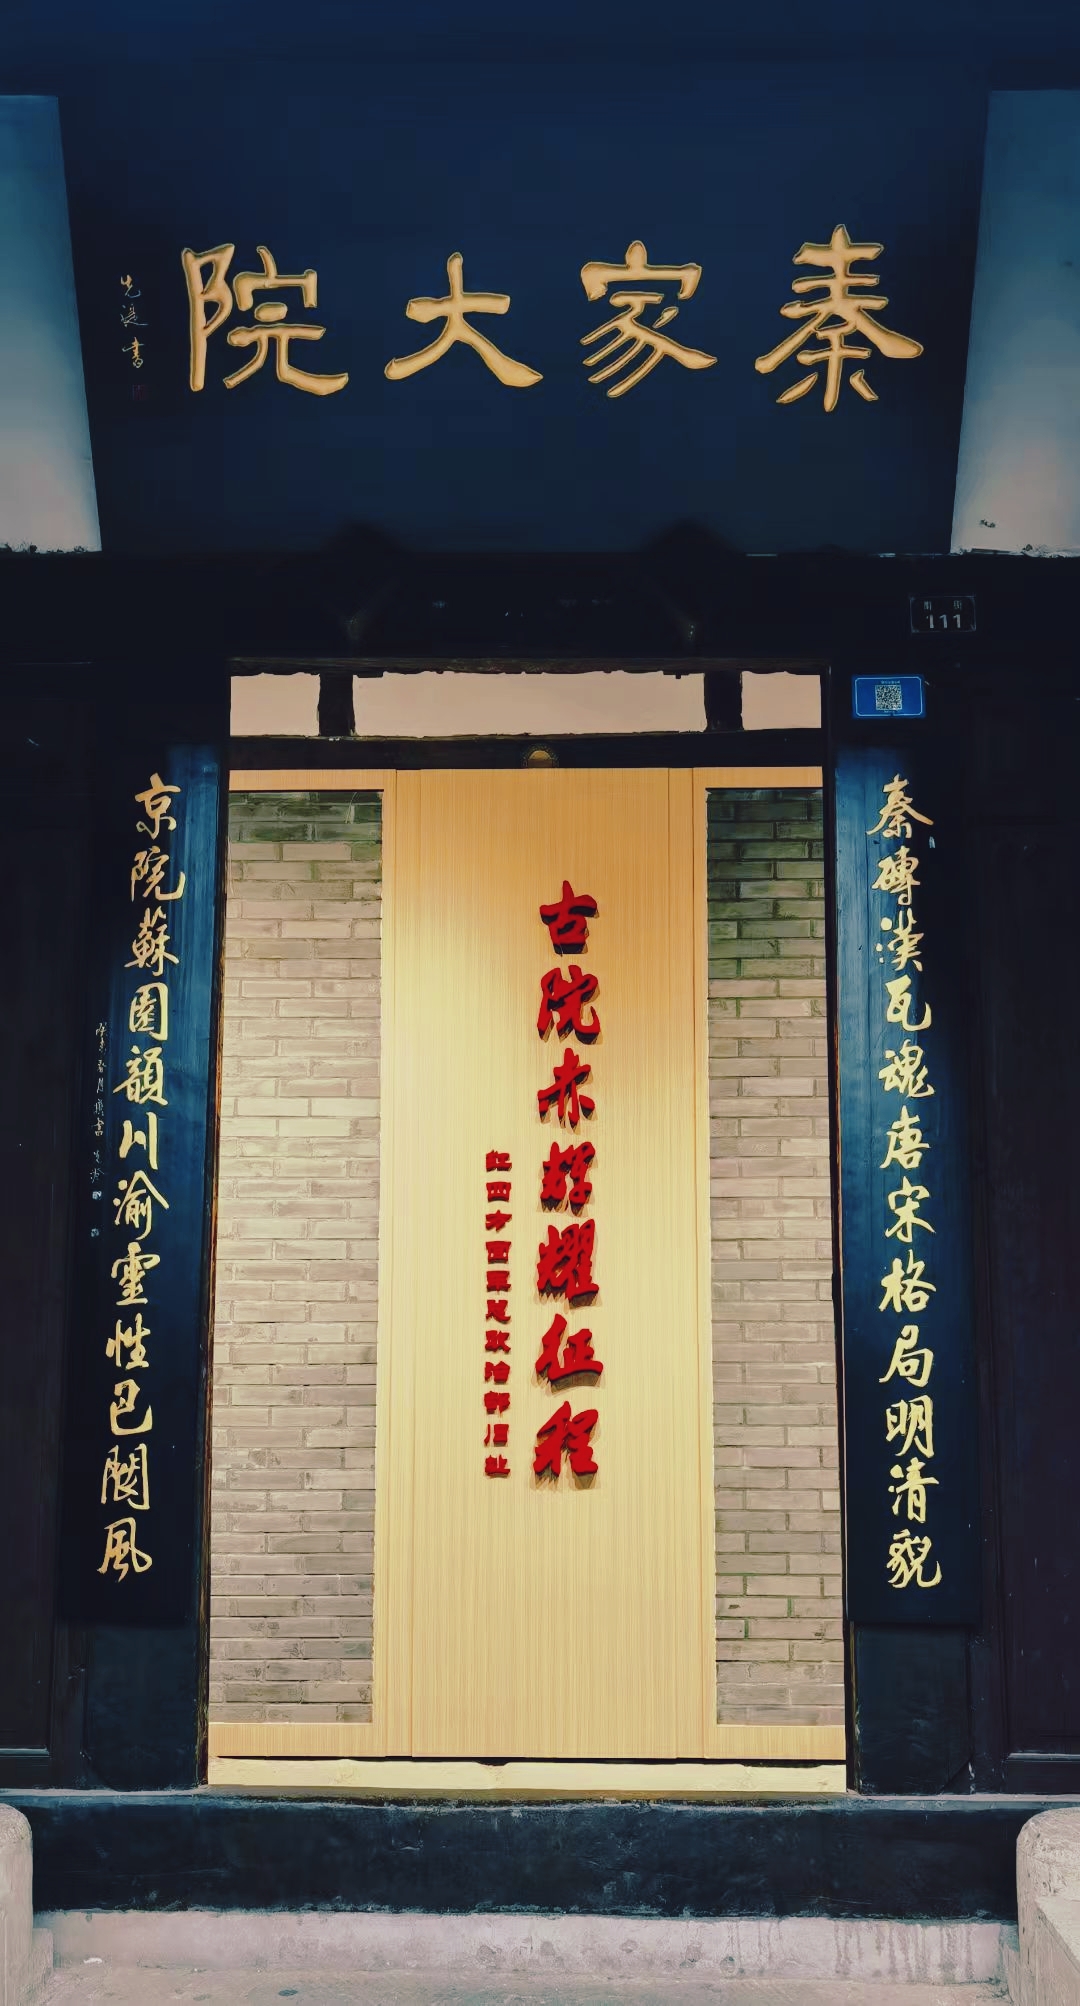 秦家大院
先遑書
南街
111
秦磚漢瓦魂唐宋格局明清貌
京院蘇園韻川渝靈性巴閬風
古院赤辉耀征程
红四方面军总政治部旧址